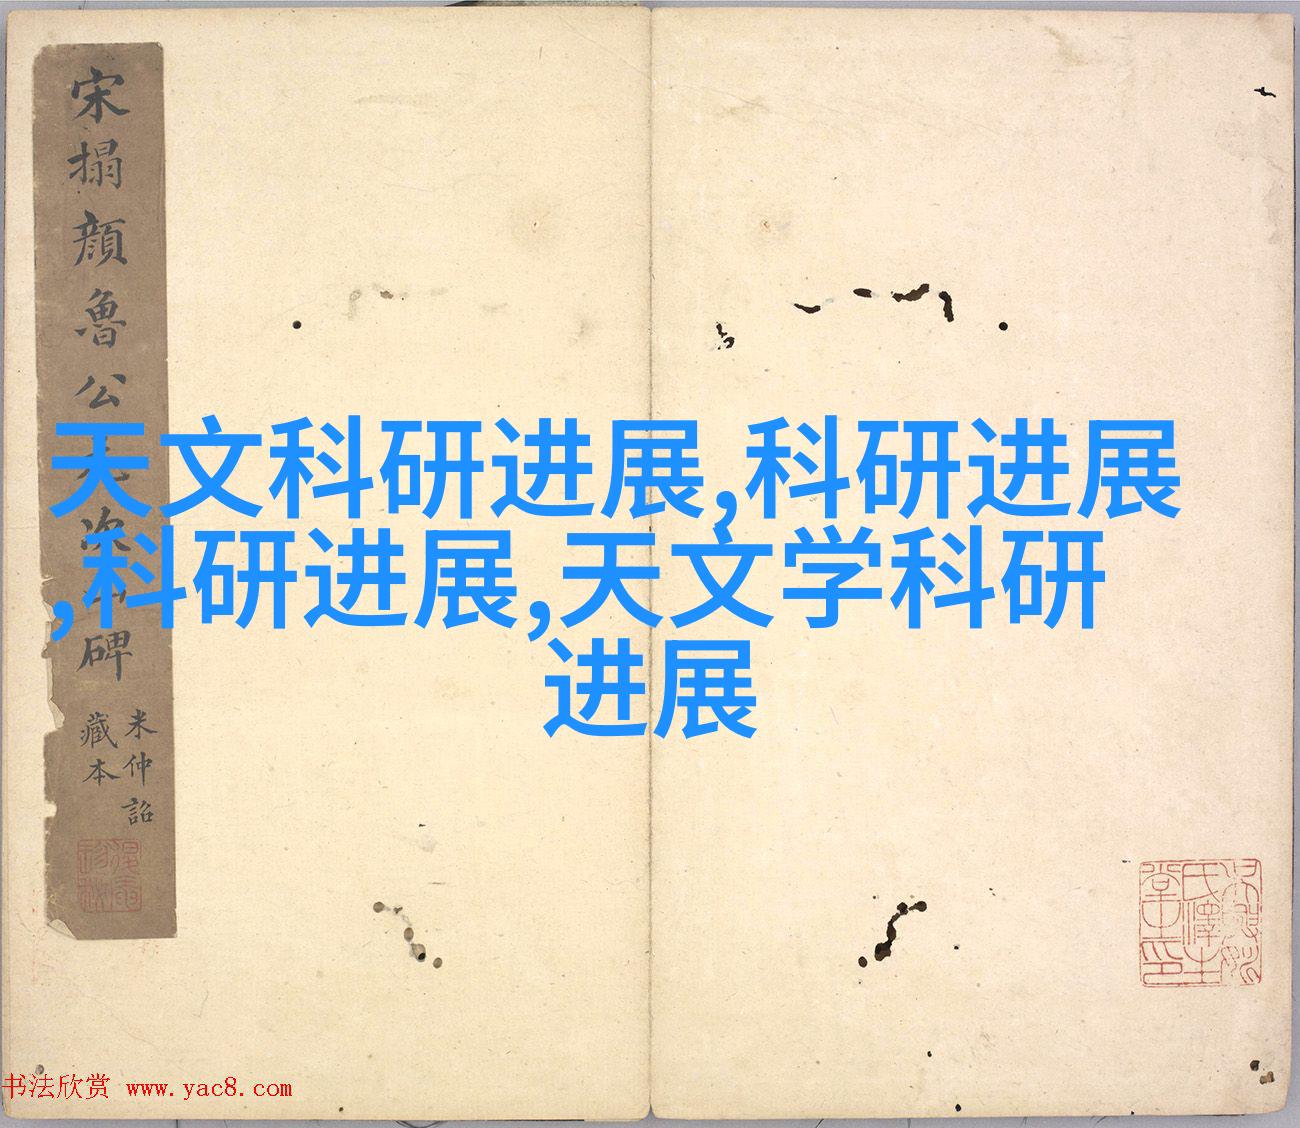 宋搨顔魯公元次山碑
米仲詔
藏本
天文科研进展,科研进展
,科研进展,天文学科研
进展
书法欣赏 www.yac8.com